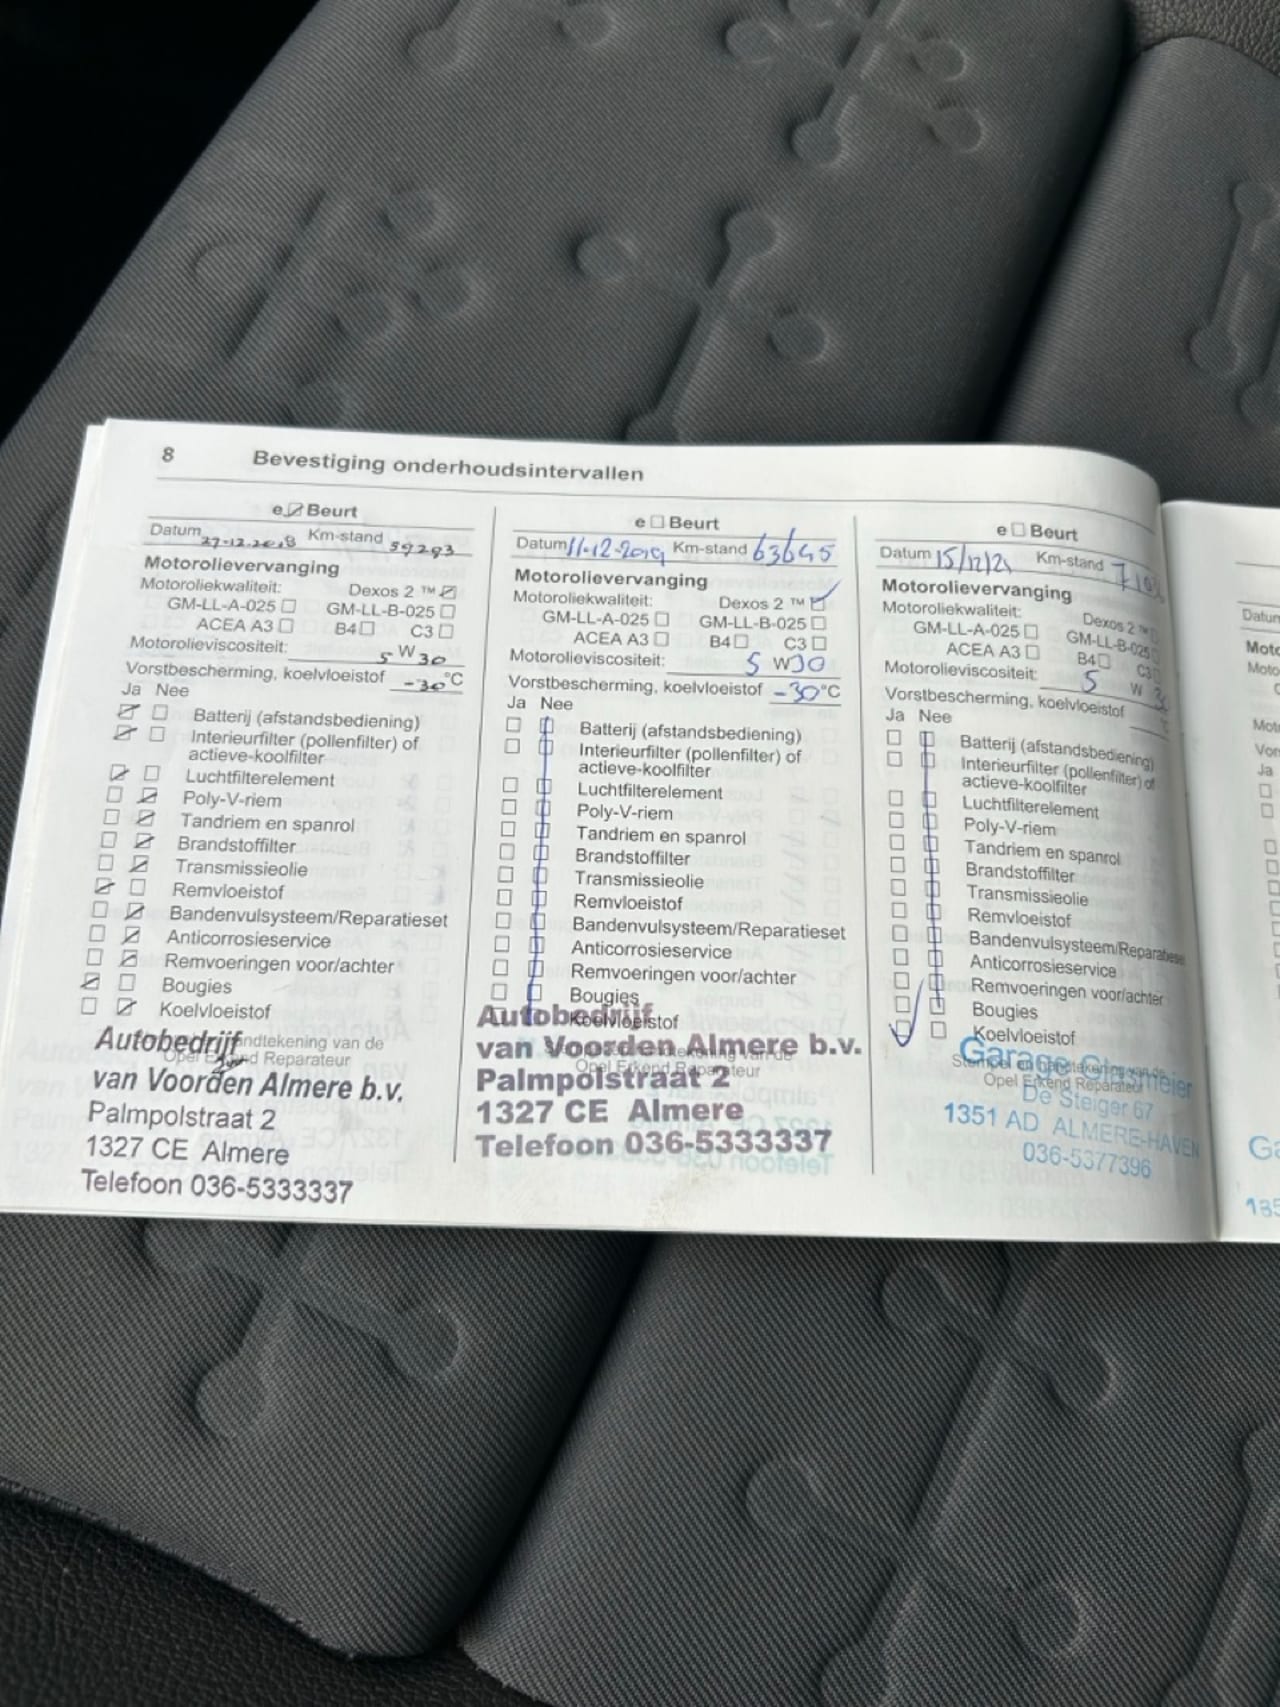 8 Bevestiging onderhoudsintervallen
e Beurt
Datum 27-12-2018 Km-stand 59293
Motorolievervanging
Motoroliekwaliteit: Dexos 2 ™
GM-LL-A-025 GM-LL-B-025
ACEA A3 B4 C3
Motorolieviscositeit: 5 W 30
Vorstbescherming, koelvloeistof -30 °C
Ja Nee
Batterij (afstandsbediening)
Interieurfilter (pollenfilter) of
actieve-koolfilter
Luchtfilterelement
Poly-V-riem
Tandriem en spanrol
Brandstoffilter
Transmissieolie
Remvloeistof
Bandenvulsysteem/Reparatieset
Anticorrosieservice
Remvoeringen voor/achter
Bougies
Koelvloeistof
Autobedrijf ndtekening van de
Opel Erkend Reparateur
van Voorden Almere b.v.
Palmpolstraat 2
1327 CE Almere
Telefoon 036-5333337
e Beurt
Datum 11-12-2019 Km-stand 63645
Motorolievervanging
Motoroliekwaliteit: Dexos 2 ™
GM-LL-A-025 GM-LL-B-025
ACEA A3 B4 C3
Motorolieviscositeit: 5 W30
Vorstbescherming, koelvloeistof -30 °C
Ja Nee
Batterij (afstandsbediening)
Interieurfilter (pollenfilter) of
actieve-koolfilter
Luchtfilterelement
Poly-V-riem
Tandriem en spanrol
Brandstoffilter
Transmissieolie
Remvloeistof
Bandenvulsysteem/Reparatieset
Anticorrosieservice
Remvoeringen voor/achter
Bougies
Koelvloeistof
Autobedrijf
van Voorden Almere b.v.
Opel Erkend Reparateur
Palmpolstraat 2
1327 CE Almere
Telefoon 036-5333337
e Beurt
Datum 15/12/21 Km-stand
Motorolievervanging
Motoroliekwaliteit: Dexos 2 ™
GM-LL-A-025 GM-LL-B-025
ACEA A3 B4 C3
Motorolieviscositeit: 5 W
Vorstbescherming, koelvloeistof °C
Ja Nee
Batterij (afstandsbediening)
Interieurfilter (pollenfilter) of
actieve-koolfilter
Luchtfilterelement
Poly-V-riem
Tandriem en spanrol
Brandstoffilter
Transmissieolie
Remvloeistof
Bandenvulsysteem/Reparatiese
Anticorrosieservice
Remvoeringen voor/achter
Bougies
Koelvloeistof
Garage
Stempel en handtekening van de
Opel Erkend Reparateur
De Steiger 67
1351 AD ALMERE-HAVEN
036-5377396
Datum
Moto
Ja